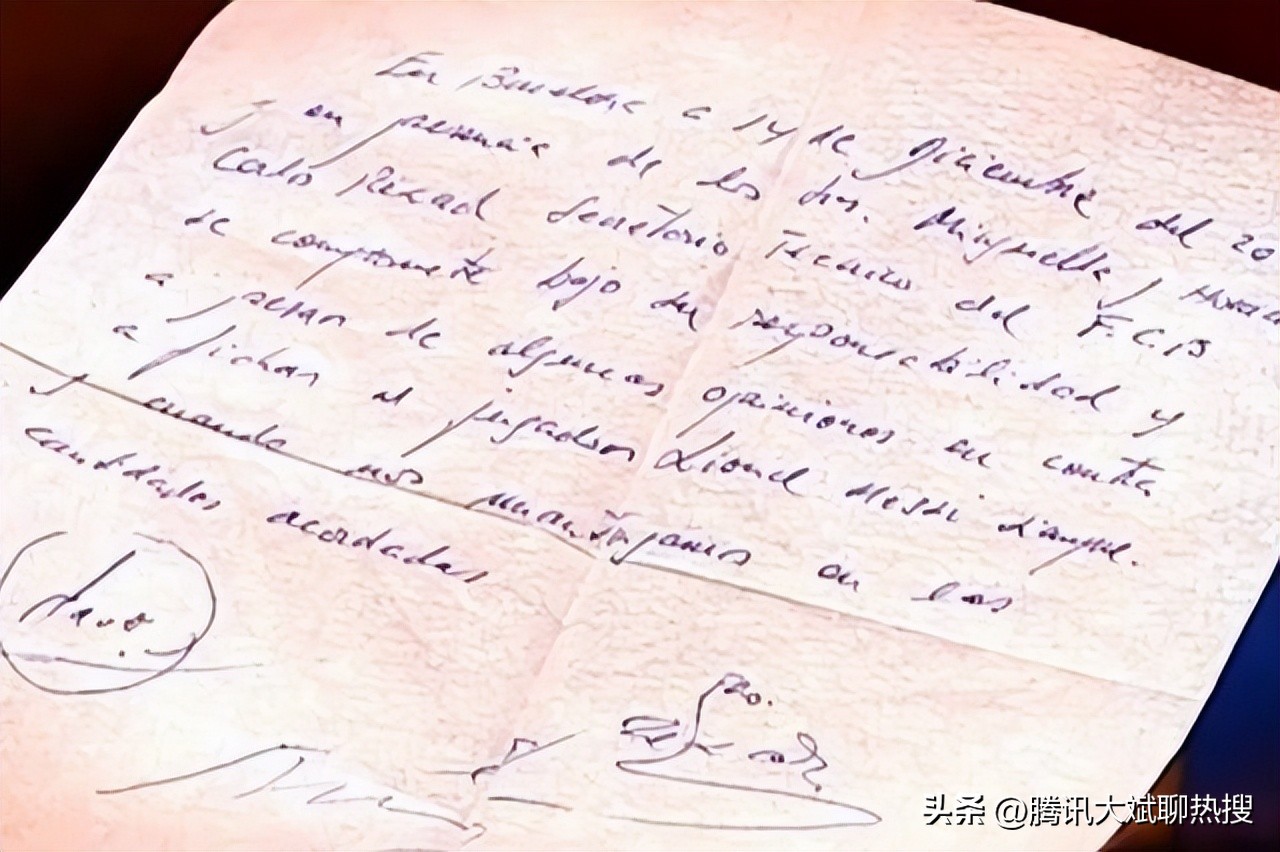 En Barcelona a 14 de Diciembre del 20
y en presencia de los Srs. Minguella y Horacio
Carlos Rexach Secretario Técnico del F.C.B
se compromete bajo su responsabilidad y
a pesar de algunas opiniones en contra
a fichar al jugador Lionel Messi
y cuando nos mantengamos en las
cantidades acordadas
头条 @腾讯大斌聊热搜